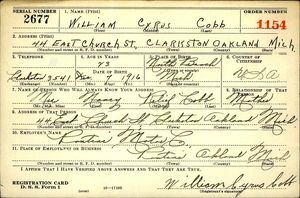 SERIAL NUMBER 1. NAME (Print) ORDER NUMBER
2677 WILLIAM CYRUS COBB 1154
2. ADDRESS (Print)
44 EAST CHURCH ST. CLARKSTON OAKLAND Mich.
3. TELEPHONE 4. AGE IN YEARS 5. PLACE OF BIRTH 6. COUNTRY OF CITIZENSHIP
23
DATE OF BIRTH
3541 1916 USA
7. NAME OF PERSON WHO WILL ALWAYS KNOW YOUR ADDRESS 8. RELATIONSHIP OF THAT PERSON
Mrs. Cobb Mother
9. ADDRESS OF THAT PERSON
44 East Church St Clarkston Oakland Mich
10. EMPLOYER'S NAME
Pontiac Motor Co.
11. PLACE OF EMPLOYMENT OR BUSINESS
Pontiac Oakland Mich
I AFFIRM THAT I HAVE VERIFIED ABOVE ANSWERS AND THAT THEY ARE TRUE.
REGISTRATION CARD
D. S. S. Form 1
William Cyrus Cobb